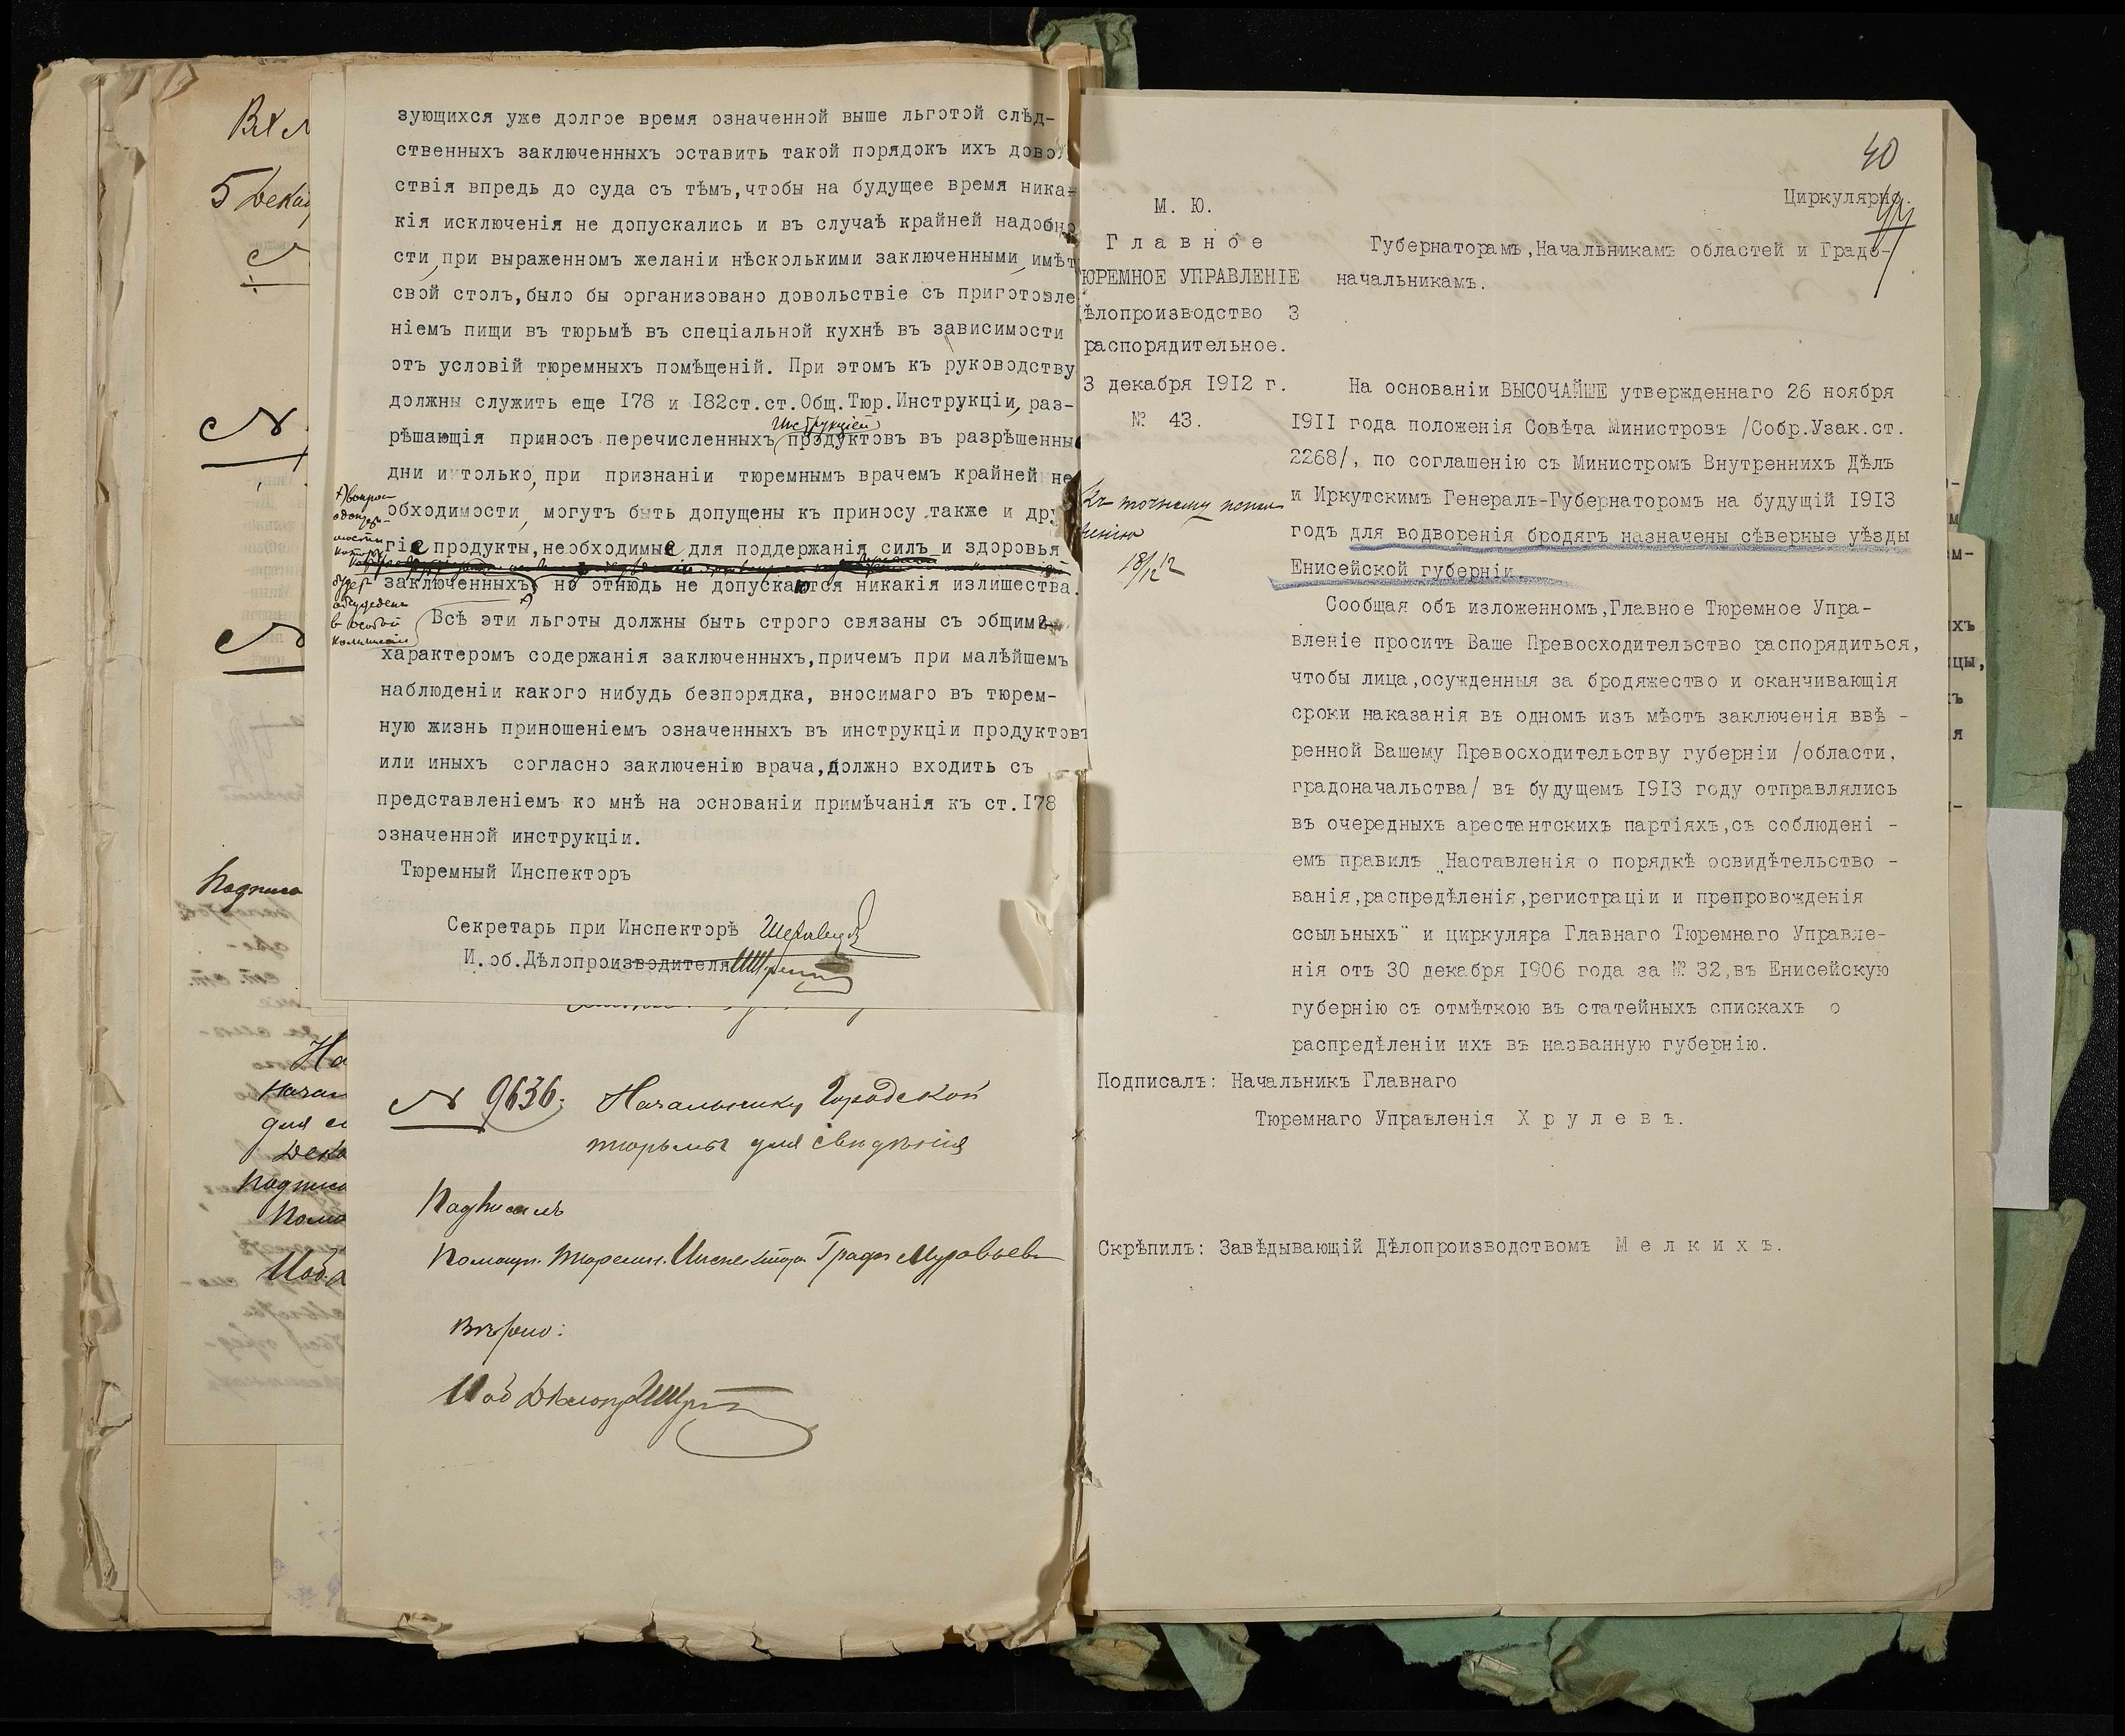 Вх №
5 Дека
№
№
№
Подписа
На
Начал
для с
Дека
Подписа
Помо
зующихся уже долгое время означенной выше льготой слѣд-
ственныхъ заключенныхъ оставить такой порядокъ ихъ довол
ствія впредь до суда съ тѣмъ,чтобы на будущее время ника-
кія исключенія не допускались и въ случаѣ крайней надобно
сти, при выраженномъ желаніи нѣсколькими заключенными, имѣт
свой столъ,было бы организовано довольствіе съ приготовле
ніемъ пищи въ тюрьмѣ въ спеціальной кухнѣ въ зависимости
отъ условій тюремныхъ помѣщеній. При этомъ къ руководству
должны служить еще 178 и 182ст.ст.Общ.Тюр.Инструкціи, раз-
Инструкціей
рѣшающія приносъ перечисленныхъ продуктовъ въ разрѣшенны
дни и только, при признаніи тюремнымъ врачемъ крайней не
обходимости, могутъ быть допущены къ приносу также и дру
гіе продукты,необходимые для поддержанія силъ и здоровья
заключенныхъ, но отнюдь не допускаются никакія излишества.
х) вопрос
о допу
мости
котор
будет
обсужденъ
в особой
коммиссіи
Всѣ эти льготы должны быть строго связаны съ общимъ
характеромъ содержанія заключенныхъ,причемъ при малѣйшемъ
наблюденіи какого нибудь безпорядка, вносимаго въ тюрем-
ную жизнь приношеніемъ означенныхъ въ инструкціи продуктовъ
или иныхъ согласно заключенію врача,должно входить съ
представленіемъ ко мнѣ на основаніи примѣчанія къ ст.178
означенной инструкціи.
Тюремный Инспекторъ
Секретарь при Инспекторѣ
И.об.Дѣлопроизводителя
№ 9636. Начальнику Городской
тюрьмы для свидѣнія
Подписалъ
Помощн. Тюремн. Инспектора Графъ Муравьевъ
Вѣрно:
И об Дѣлопр
40
Циркулярно.
М. Ю.
Главное
ЮРЕМНОЕ УПРАВЛЕНІЕ
ѣлопроизводство 3
распорядительное.
3 декабря 1912 г.
№ 43.
Къ точному испол
ненію
18/12 12
Губернаторамъ,Начальникамъ областей и Градо-
начальникамъ.
На основаніи ВЫСОЧАЙШЕ утвержденнаго 26 ноября
1911 года положенія Совѣта Министровъ /Собр.Узак.ст.
2268/, по соглашенію съ Министромъ Внутреннихъ Дѣлъ
и Иркутскимъ Генералъ-Губернаторомъ на будущій 1913
годъ для водворенія бродягъ назначены сѣверные уѣзды
Енисейской губерніи.
Сообщая объ изложенномъ,Главное Тюремное Упра-
вленіе проситъ Ваше Превосходительство распорядиться,
чтобы лица,осужденныя за бродяжество и оканчивающія
сроки наказанія въ одномъ изъ мѣстъ заключенія ввѣ -
ренной Вашему Превосходительству губерніи /области,
градоначальства/ въ будущемъ 1913 году отправлялись
въ очередныхъ арестантскихъ партіяхъ,съ соблюдені -
емъ правилъ „Наставленія о порядкѣ освидѣтельство -
ванія,распредѣленія,регистраціи и препровожденія
ссыльныхъ" и циркуляра Главнаго Тюремнаго Управле-
нія отъ 30 декабря 1906 года за № 32,въ Енисейскую
губернію съ отмѣткою въ статейныхъ спискахъ о
распредѣленіи ихъ въ названную губернію.
Подписалъ: Начальникъ Главнаго
Тюремнаго Управленія Хрулевъ.
Скрѣпилъ: Завѣдывающій Дѣлопроизводствомъ Мелкихъ.